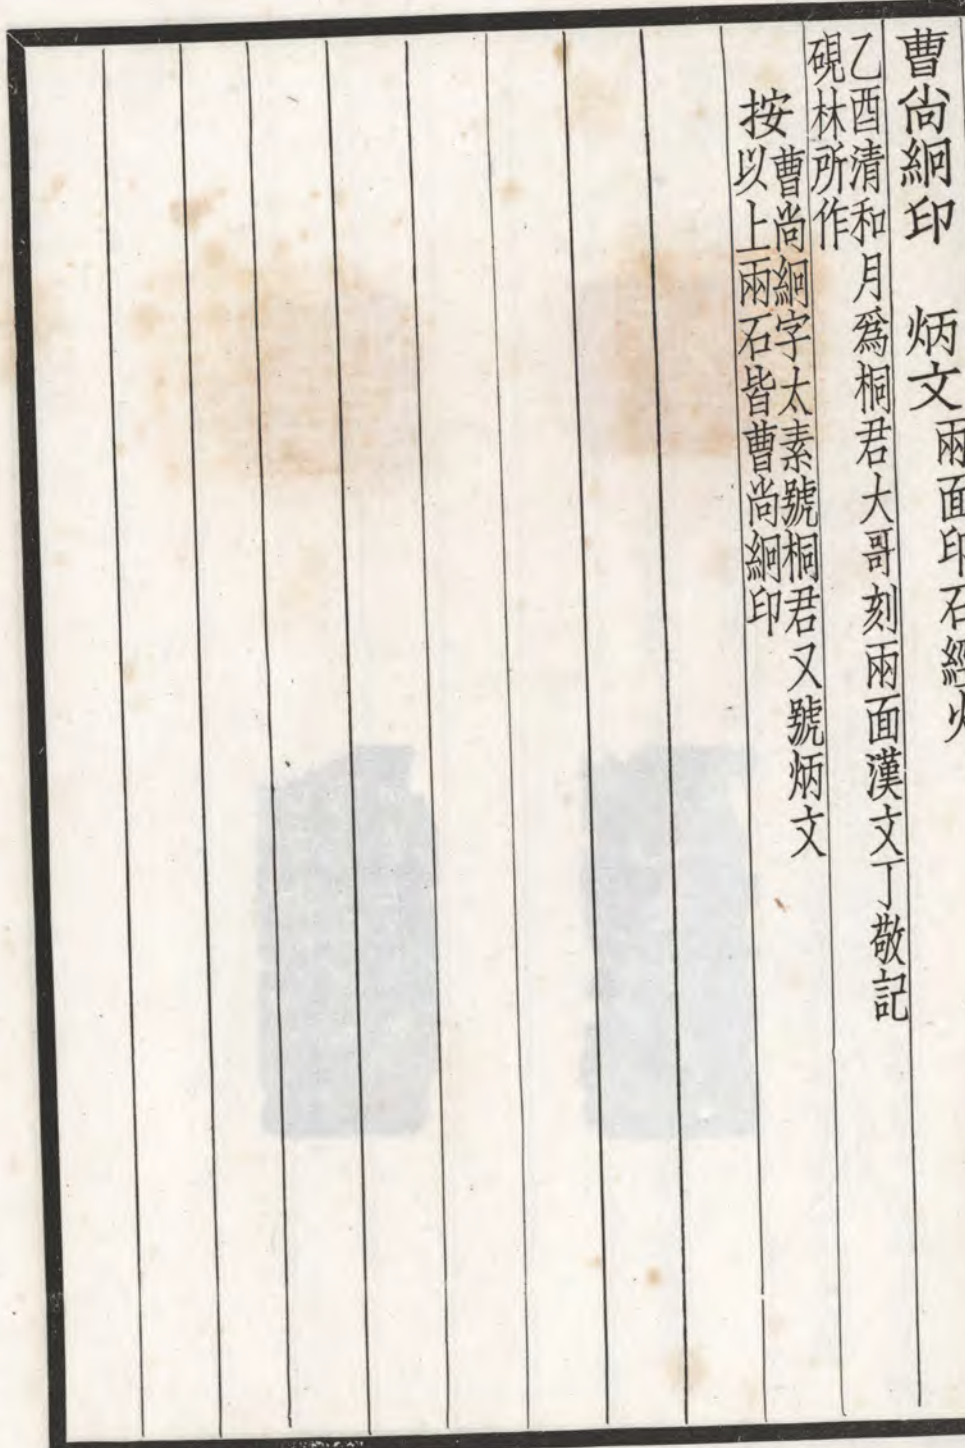 曹尚絅印　炳文兩面印石經火
乙酉清和月爲桐君大哥刻兩面漢文丁敬記
硯林所作
按曹尚絅字太素號桐君又號炳文
以上兩石皆曹尚絅印